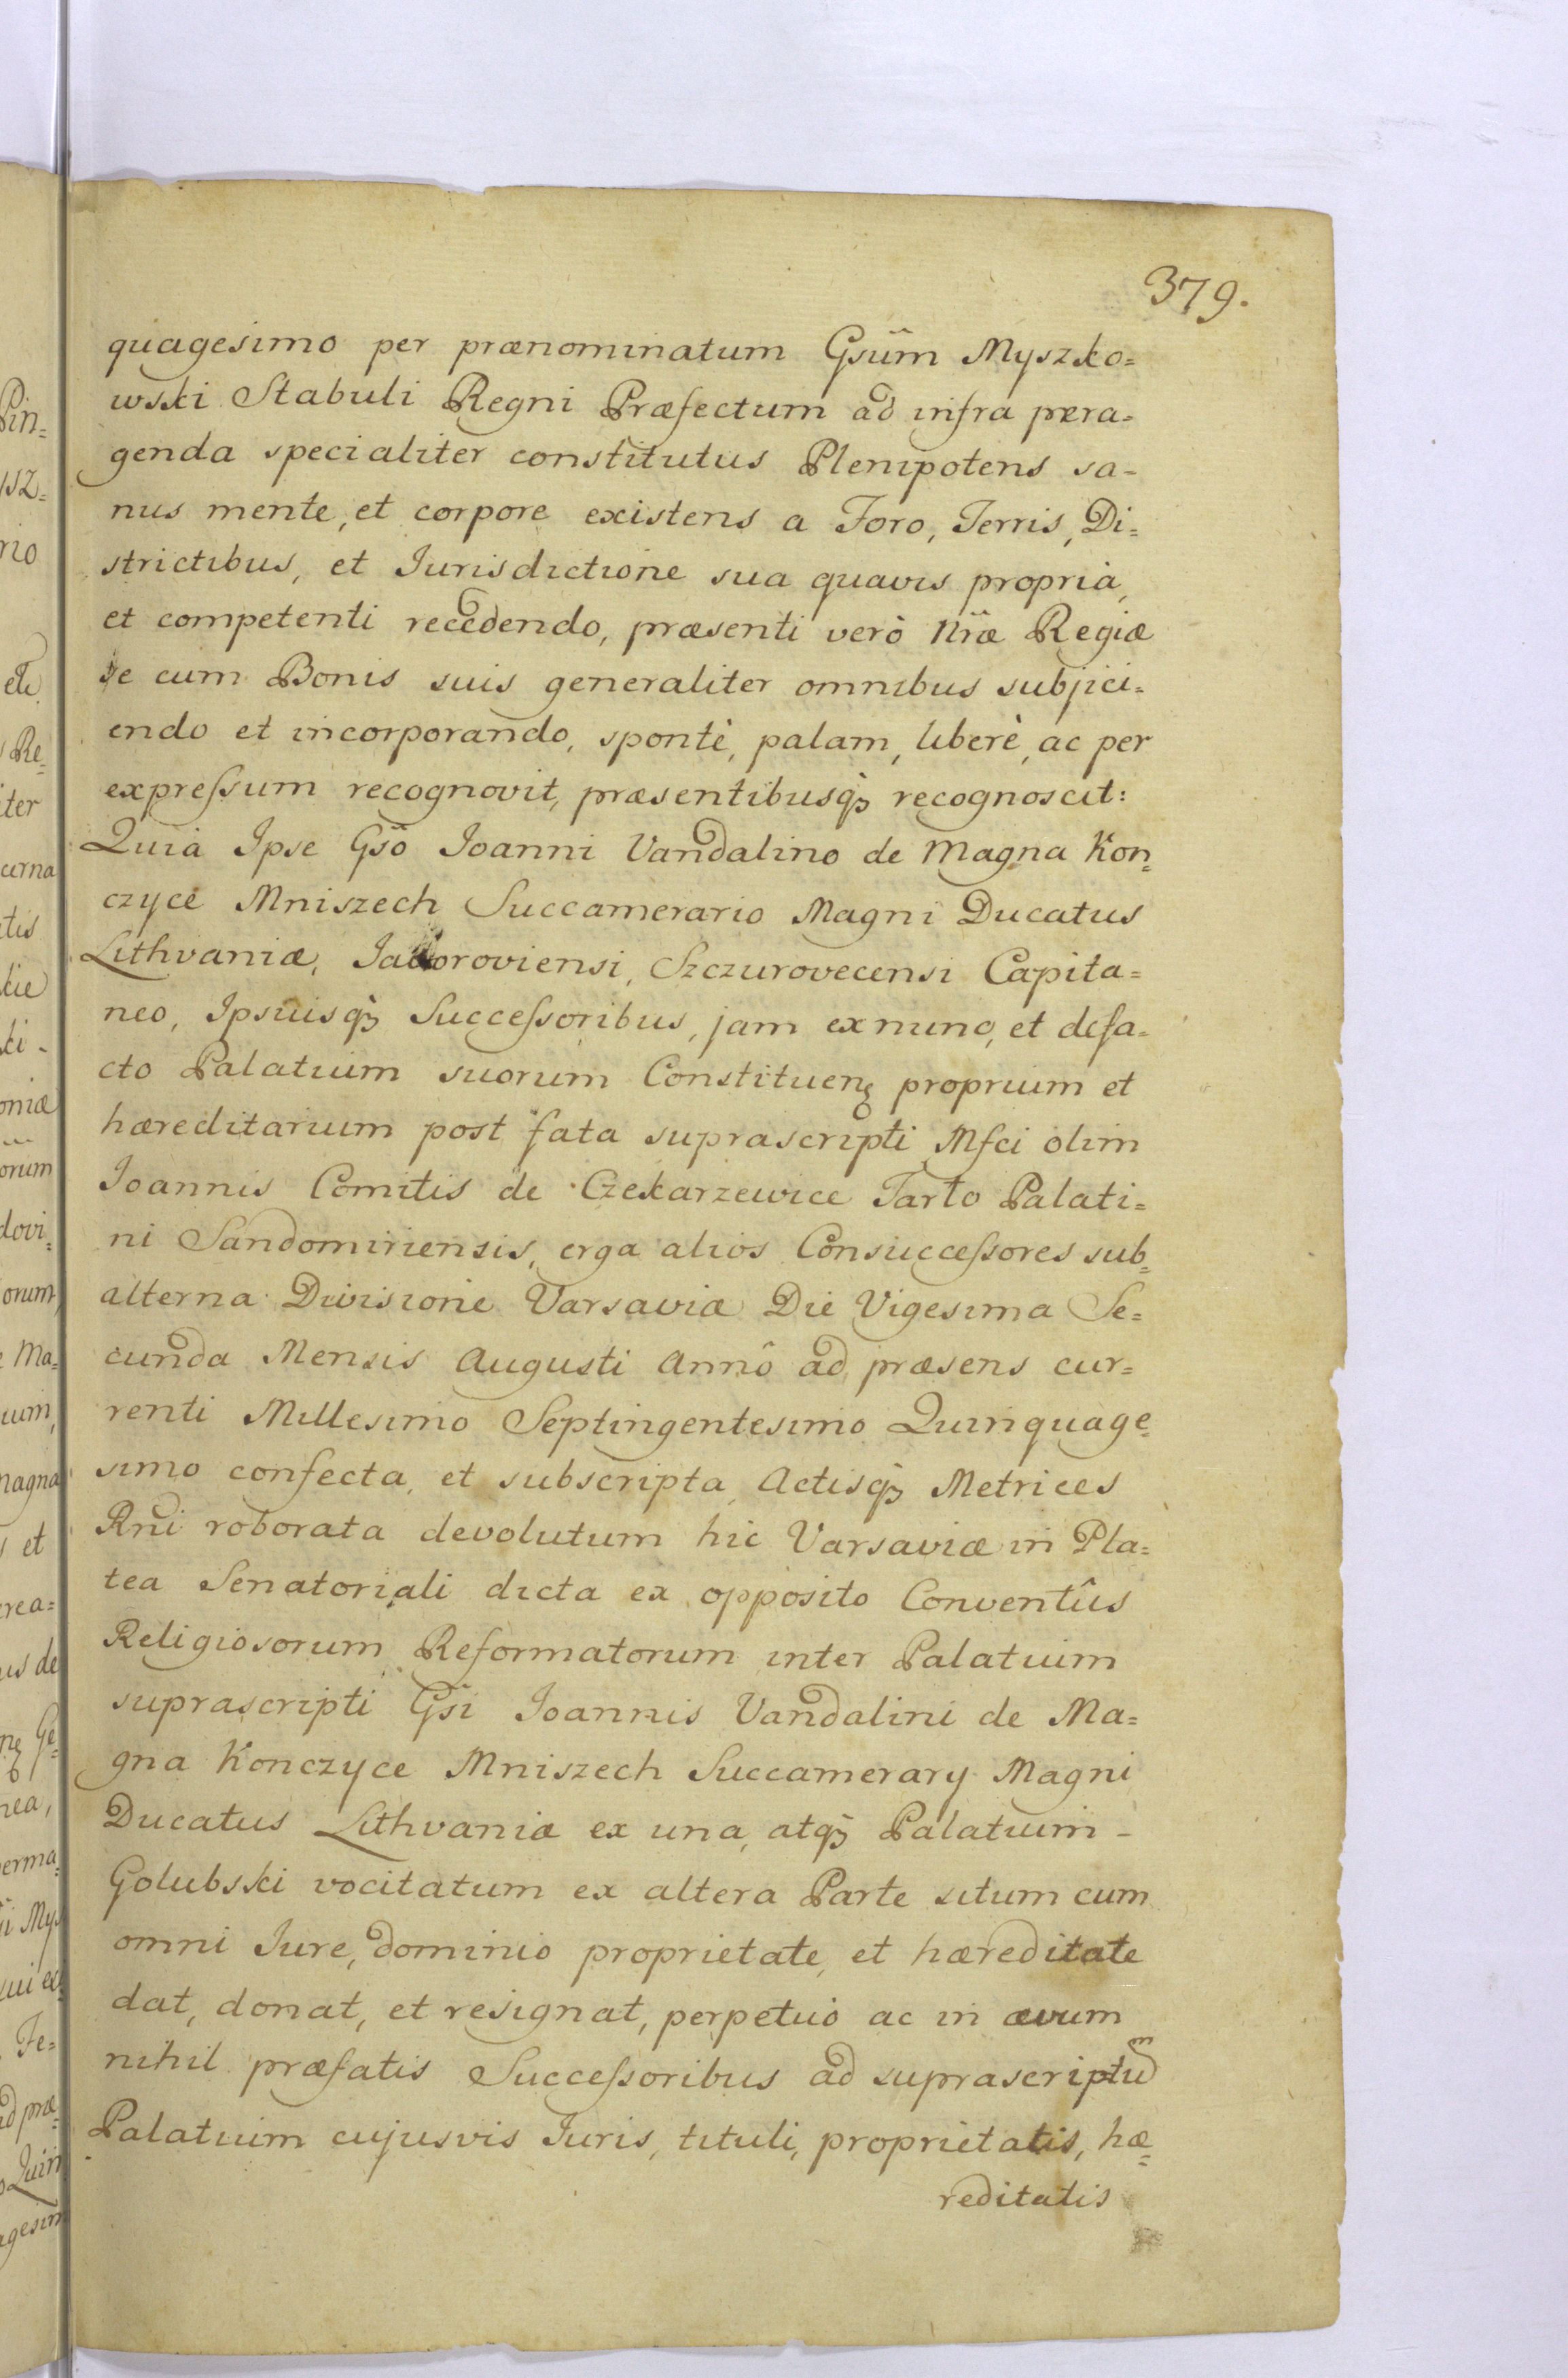 379.
quagesimo per prænominatum Gsũm Myszko=
wski Stabuli Regni Præfectum ad infra pæra=
genda specialiter constitutus Plenipotens sa-
nus mente, et corpore existens a Foro, Terris, Di=
strictibus, et Jurisdictione sua quavis propria,
et competenti recedendo, præsenti verò Nr̃æ Regiæ
se cum Bonis suis generaliter omnibus subjici=
endo et incorporando, spontè, palam, liberè, ac per
expreſsum recognovit, præsentibusqꝫ recognoscit:
Quia Ipse Gsõ Joanni Vandalino de Magna Kon=
czyce Mniszech Succamerario Magni Ducatus
Lithvaniæ, Javoroviensi, Szczurovecensi Capita=
neo, Ipsiusqꝫ Succeſsoribus, jam ex nunc, et defa=
cto Palatium suorum Constituenꝫ proprium et
hæreditarium post fata suprascripti Mfci olim
Joannis Comitis de Czekarzewice Tarło Palati=
ni Sandomiriensis, erga alios Consucceſsores sub=
alterna Divisione Varsaviæ Die Vigesima Se=
cunda Mensis Augusti Annô ad præsens cur=
renti Millesimo Septingentesimo Quinquage=
simo confecta, et subscripta, Actisqꝫ Metrices
Rni roborata devolutum hic Varsaviæ in Pla=
tea Senatoriali dicta ex opposito Conventûs
Religiosorum Reformatorum inter Palatium
suprascripti Gsi Joannis Vandalini de Ma=
gna Konczyce Mniszech Succamerary Magni
Ducatus Lithvaniæ ex una, atqꝫ Palatium -
Golubski vocitatum ex altera Parte situm cum
omni Jure, dominio proprietate, et hæreditate
dat, donat, et resignat, perpetuò ac in ævum
nihil præfatis Succeſsoribus ad suprascriptũm
Palatium cujusvis Juris, tituli, proprietatis, hæ=
reditatis